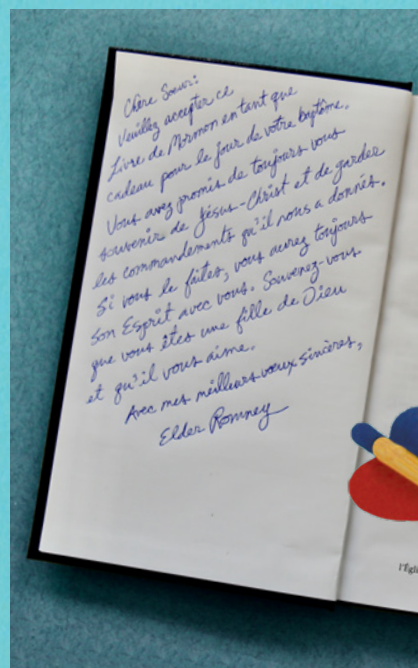 Chère Soeur:
Veuillez accepter ce
Livre de Mormon en tant que
cadeau pour le jour de votre baptême.
Vous avez promis de toujours vous
souvenir de Jésus-Christ et de garder
les commandements qu'il nous a donnés.
Si vous le faites, vous aurez toujours
son Esprit avec vous. Souvenez-vous
que vous êtes une fille de Dieu
et qu'il vous aime.
Avec mes meilleurs vœux sincères,
Elder Romney